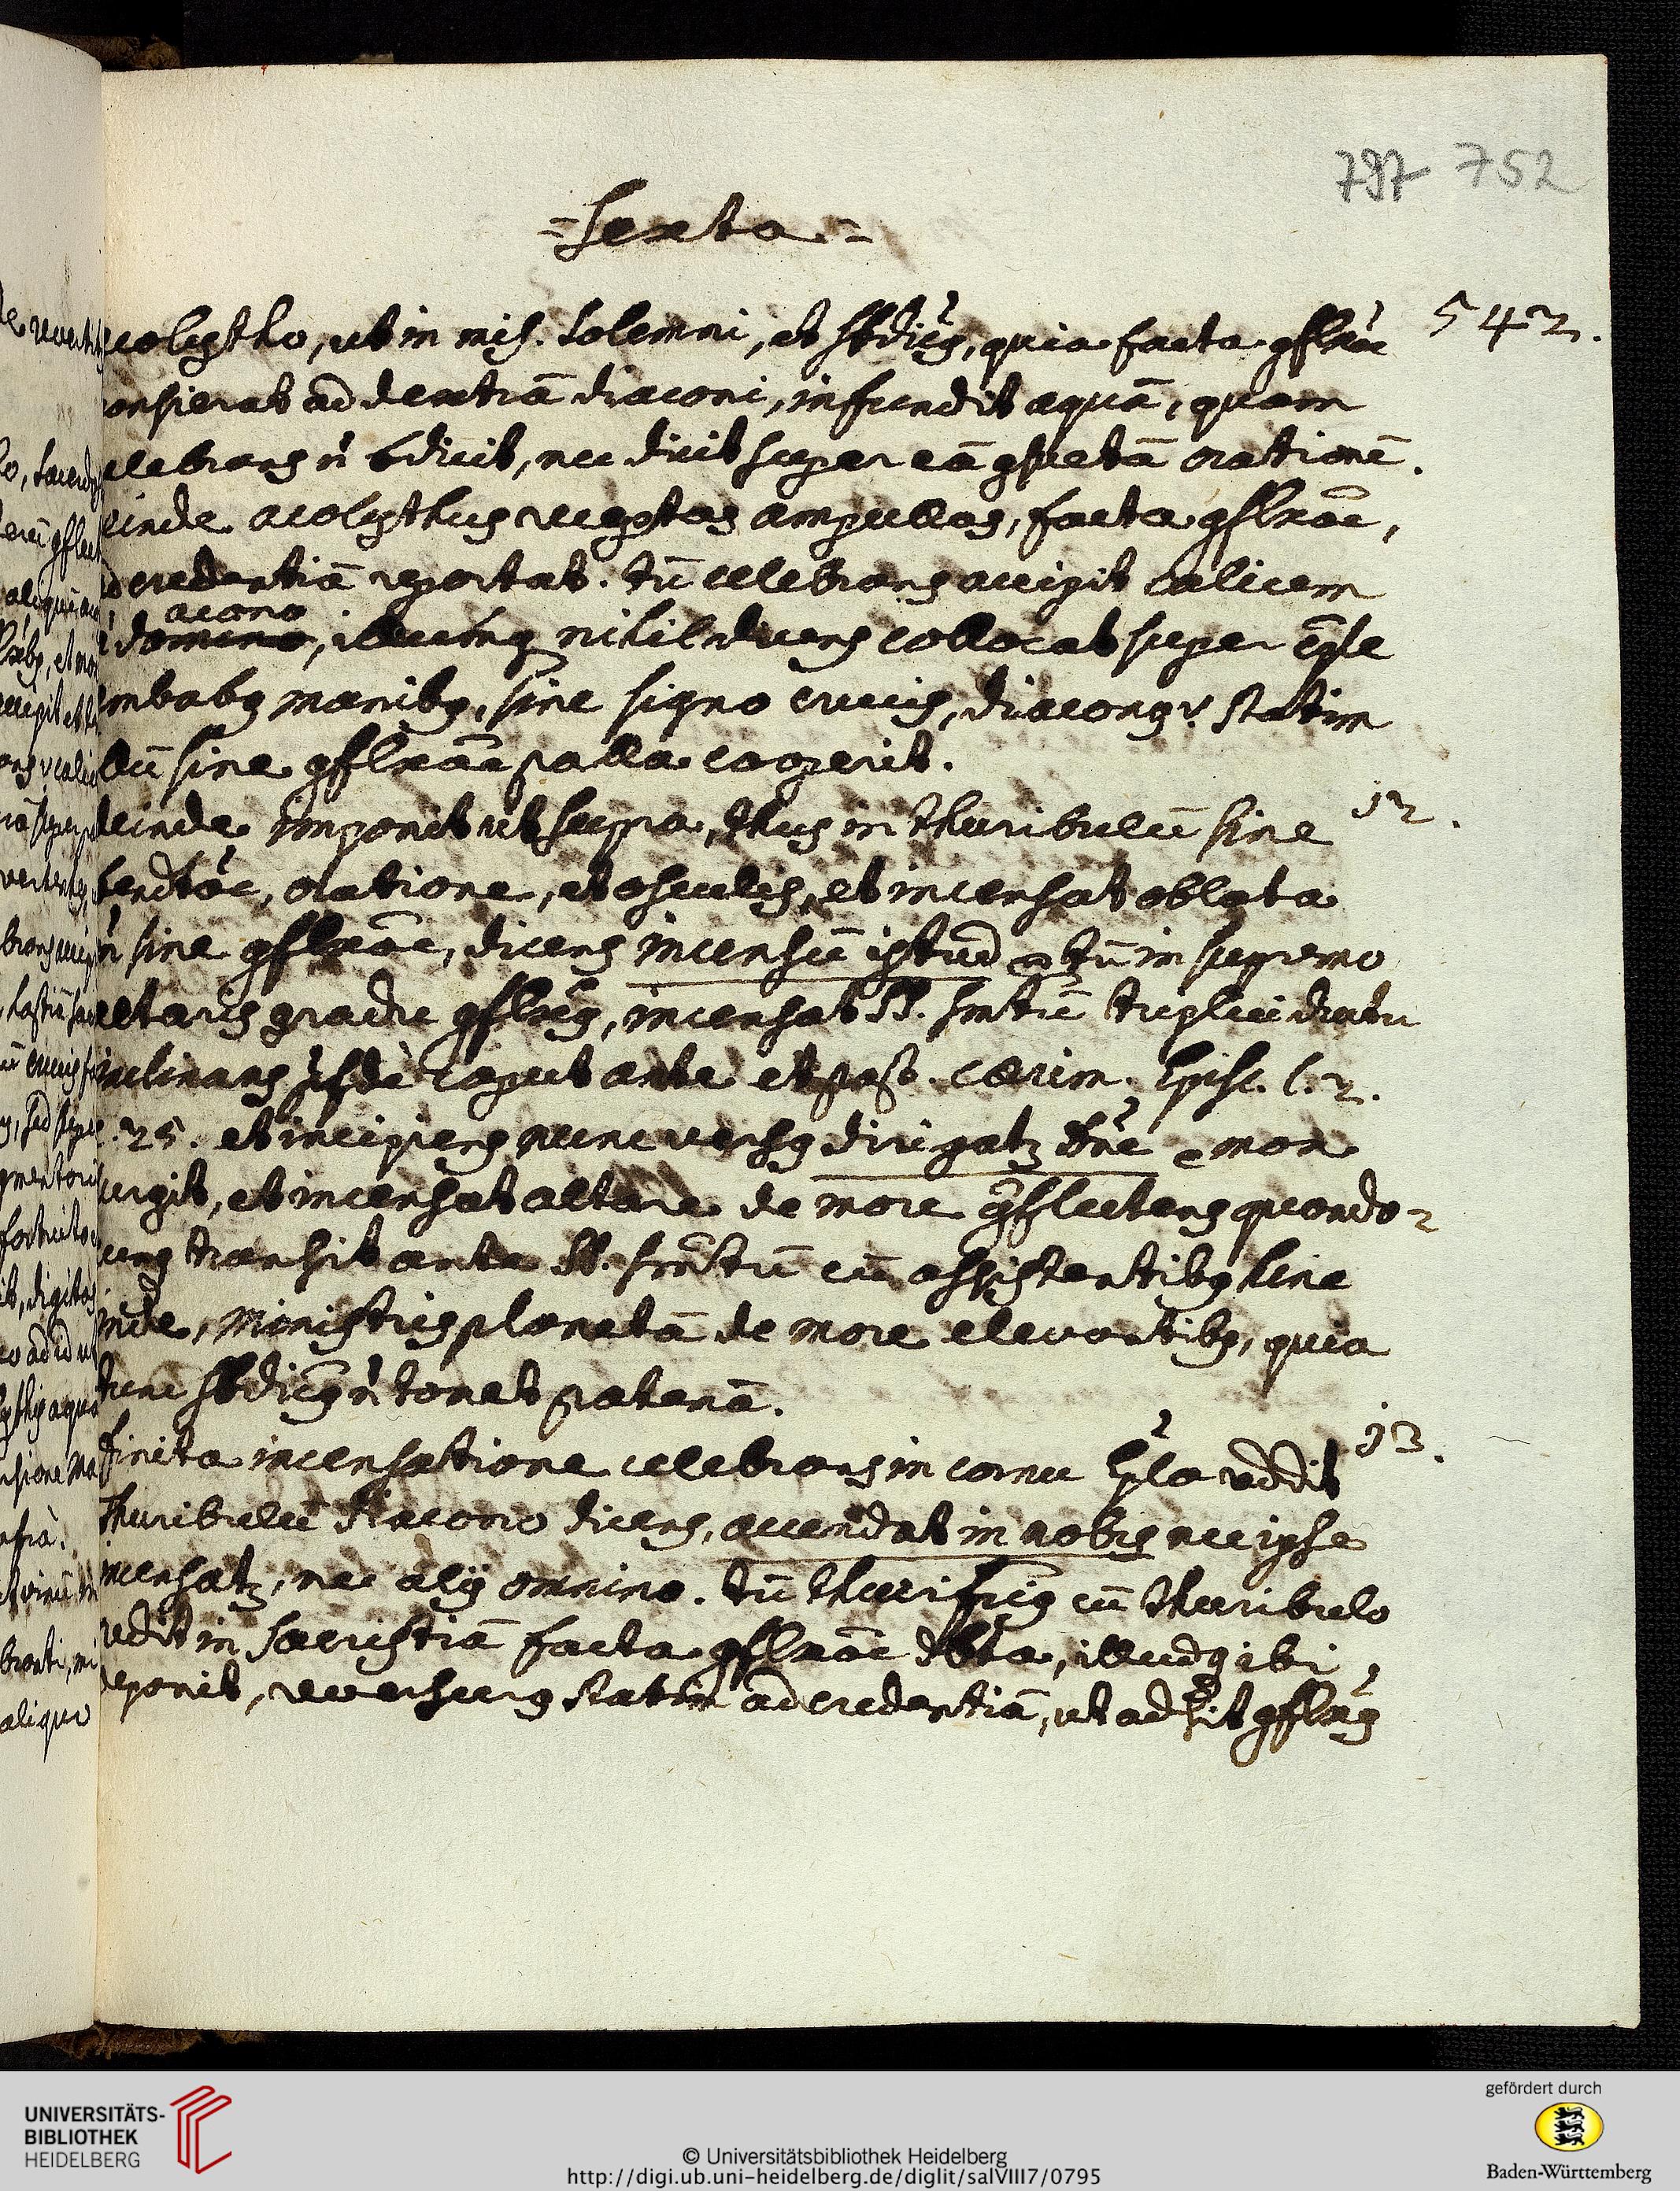 797 752
=Sexta=
542.
acolytho, ut in miss. solemni, et sbdicg, quia facta gflxōe
consierat ad dextrā diaconi, infundit aquā, quam
celebrans ñ bdicit, nec dicit super eā gsuetā orationē.
deinde acolythus receptas ampullas, facta gflxōe,
ad credentiā reportat. tū celebrans accipit calicem
acono
domino, nihil dicens collocat super
ambabg manibg, sine signo crucis, diacong v. statim
illū sine gflxōe palla cooperit.
12.
deinde imponit ut supra, thus in thuribulū sine
bendtōe, oratione, et osculis, et incensat oblata
ñ sine gflxōe, dicens incensū istud tū in supremo
altaris gradu gflxg, incensat SS. smtū triplici ductu
inclinans caput ante et post. Cærim. Episc. l. 2.
c. 25. et incipiens nunc versg dirigatz Dñe mox
surgit, et incensat altare de more gflectens quando=
cung transit ante SS. smtū cū assistentibg hinc
inde, ministris planetā de more elevantibg, quia
tunc sbdicg ñ tenet patenā.
13.
finita incensatione celebrans in cornu Eplæ reddit
thuribulū diacono dicens, accendat in nobis nec ipse
incensatz, nec alij omnino. tū thurifrig cū thuribulo
redit in sacristiā facta gflxōe dbta, illudq ibi
deponit, reversurg statim ad credentiā, ut adsit gflxg
UNIVERSITÄTS-
BIBLIOTHEK
HEIDELBERG
© Universitätsbibliothek Heidelberg
http://digi.ub.uni-heidelberg.de/diglit/salVIII7/0795
gefördert durch
Baden-Württemberg